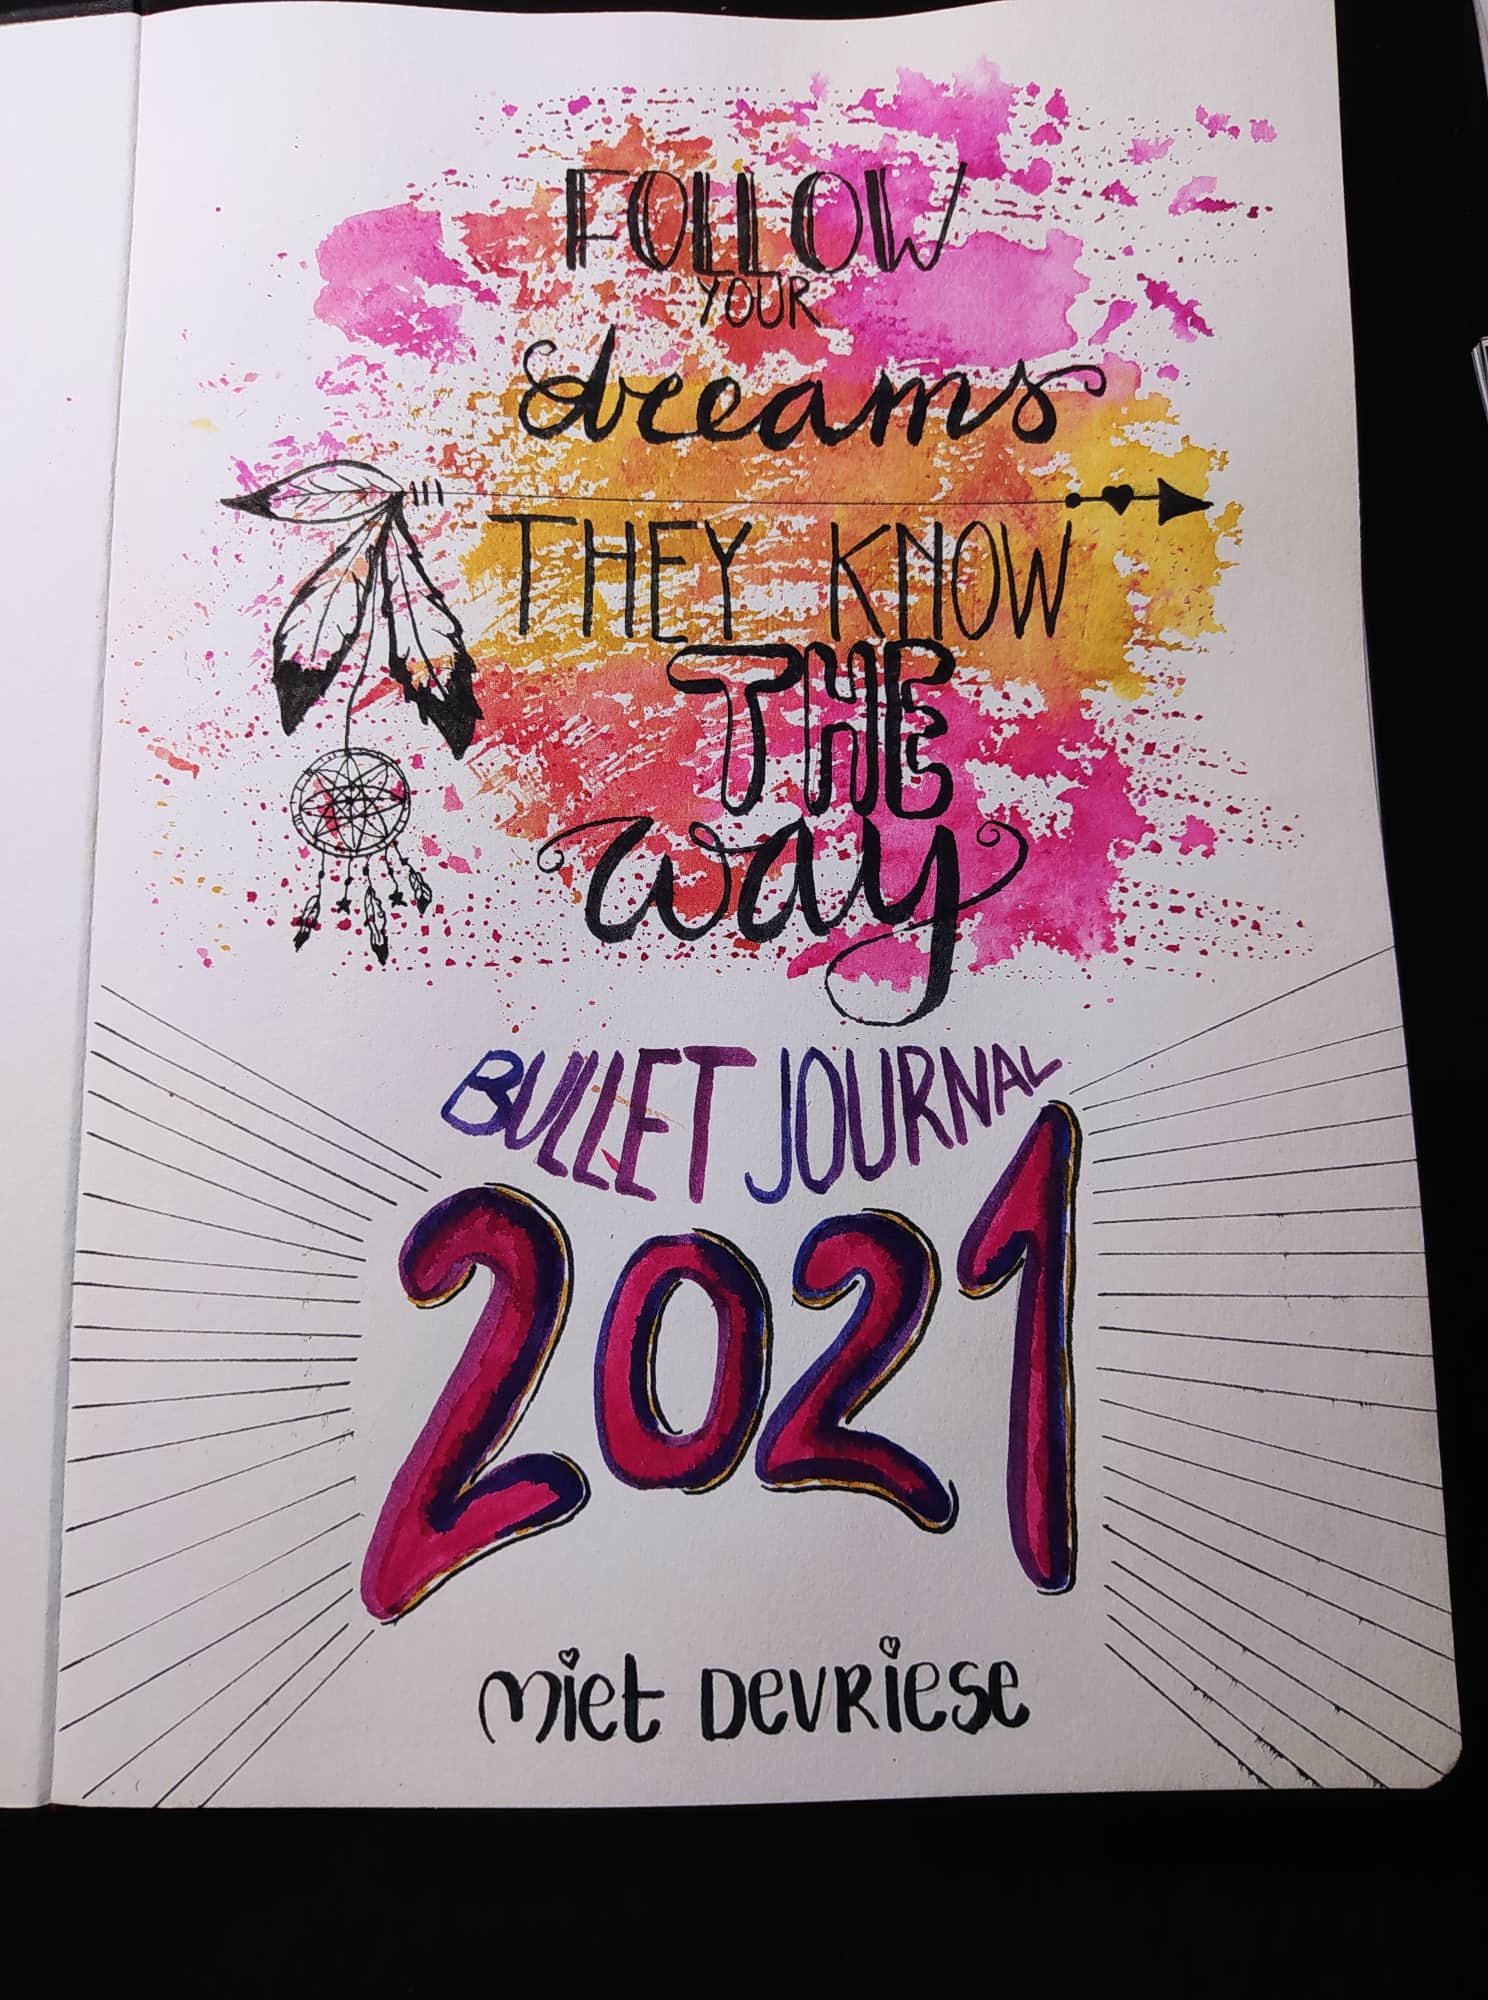 FOLLOW
YOUR
dreams
THEY KNOW
THE
way
BULLET JOURNAL
2021
miet DEVRiESE